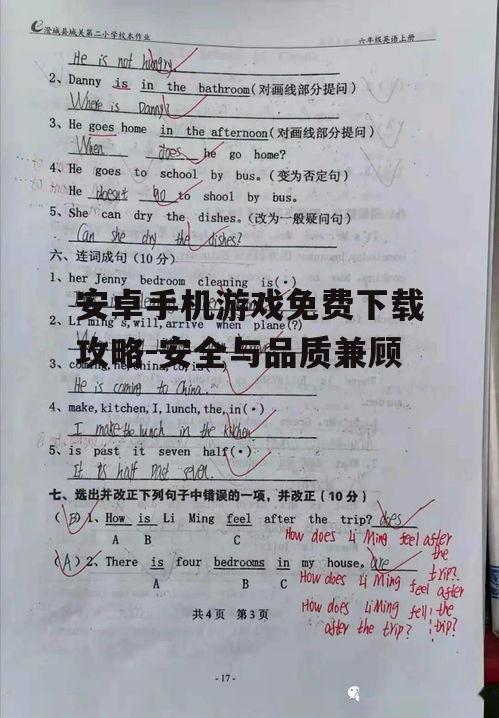 澄城县城关第二小学校本作业 六年级英语上册
He is not hungry
2、Danny is in the bathroom(对画线部分提问)
Where is Danny?
3、He goes home in the afternoon(对画线部分提问)
When does he go home?
4、He goes to school by bus。(变为否定句)
He doesn't go to shool by bus.
5、She can dry the dishes。(改为一般疑问句)
Can she dry the dishes?
六、连词成句(10分)
1、her Jenny bedroom cleaning is(·)
安卓手机游戏免费下载
2、Li Ming's,will,arrive when plane(?)
攻略-安全与品质兼顾
3、coming,he,china,to,is(·)
He is coming to China.
4、make,kitchen,I,lunch,the,in(·)
I make the lunch in the kitchen
5、is past it seven half(·)
It is half past seven.
七、选出并改正下列句子中错误的一项,并改正(10分)
(B)1、How is Li Ming feel after the trip? does
A B C
How does Li Ming feel after the trip?
(A)2、There is four bedrooms in my house。are
A B C
How does Li Ming feel after
How does Li Ming fell the
after the trip? trip?
共4页 第3页
-17-